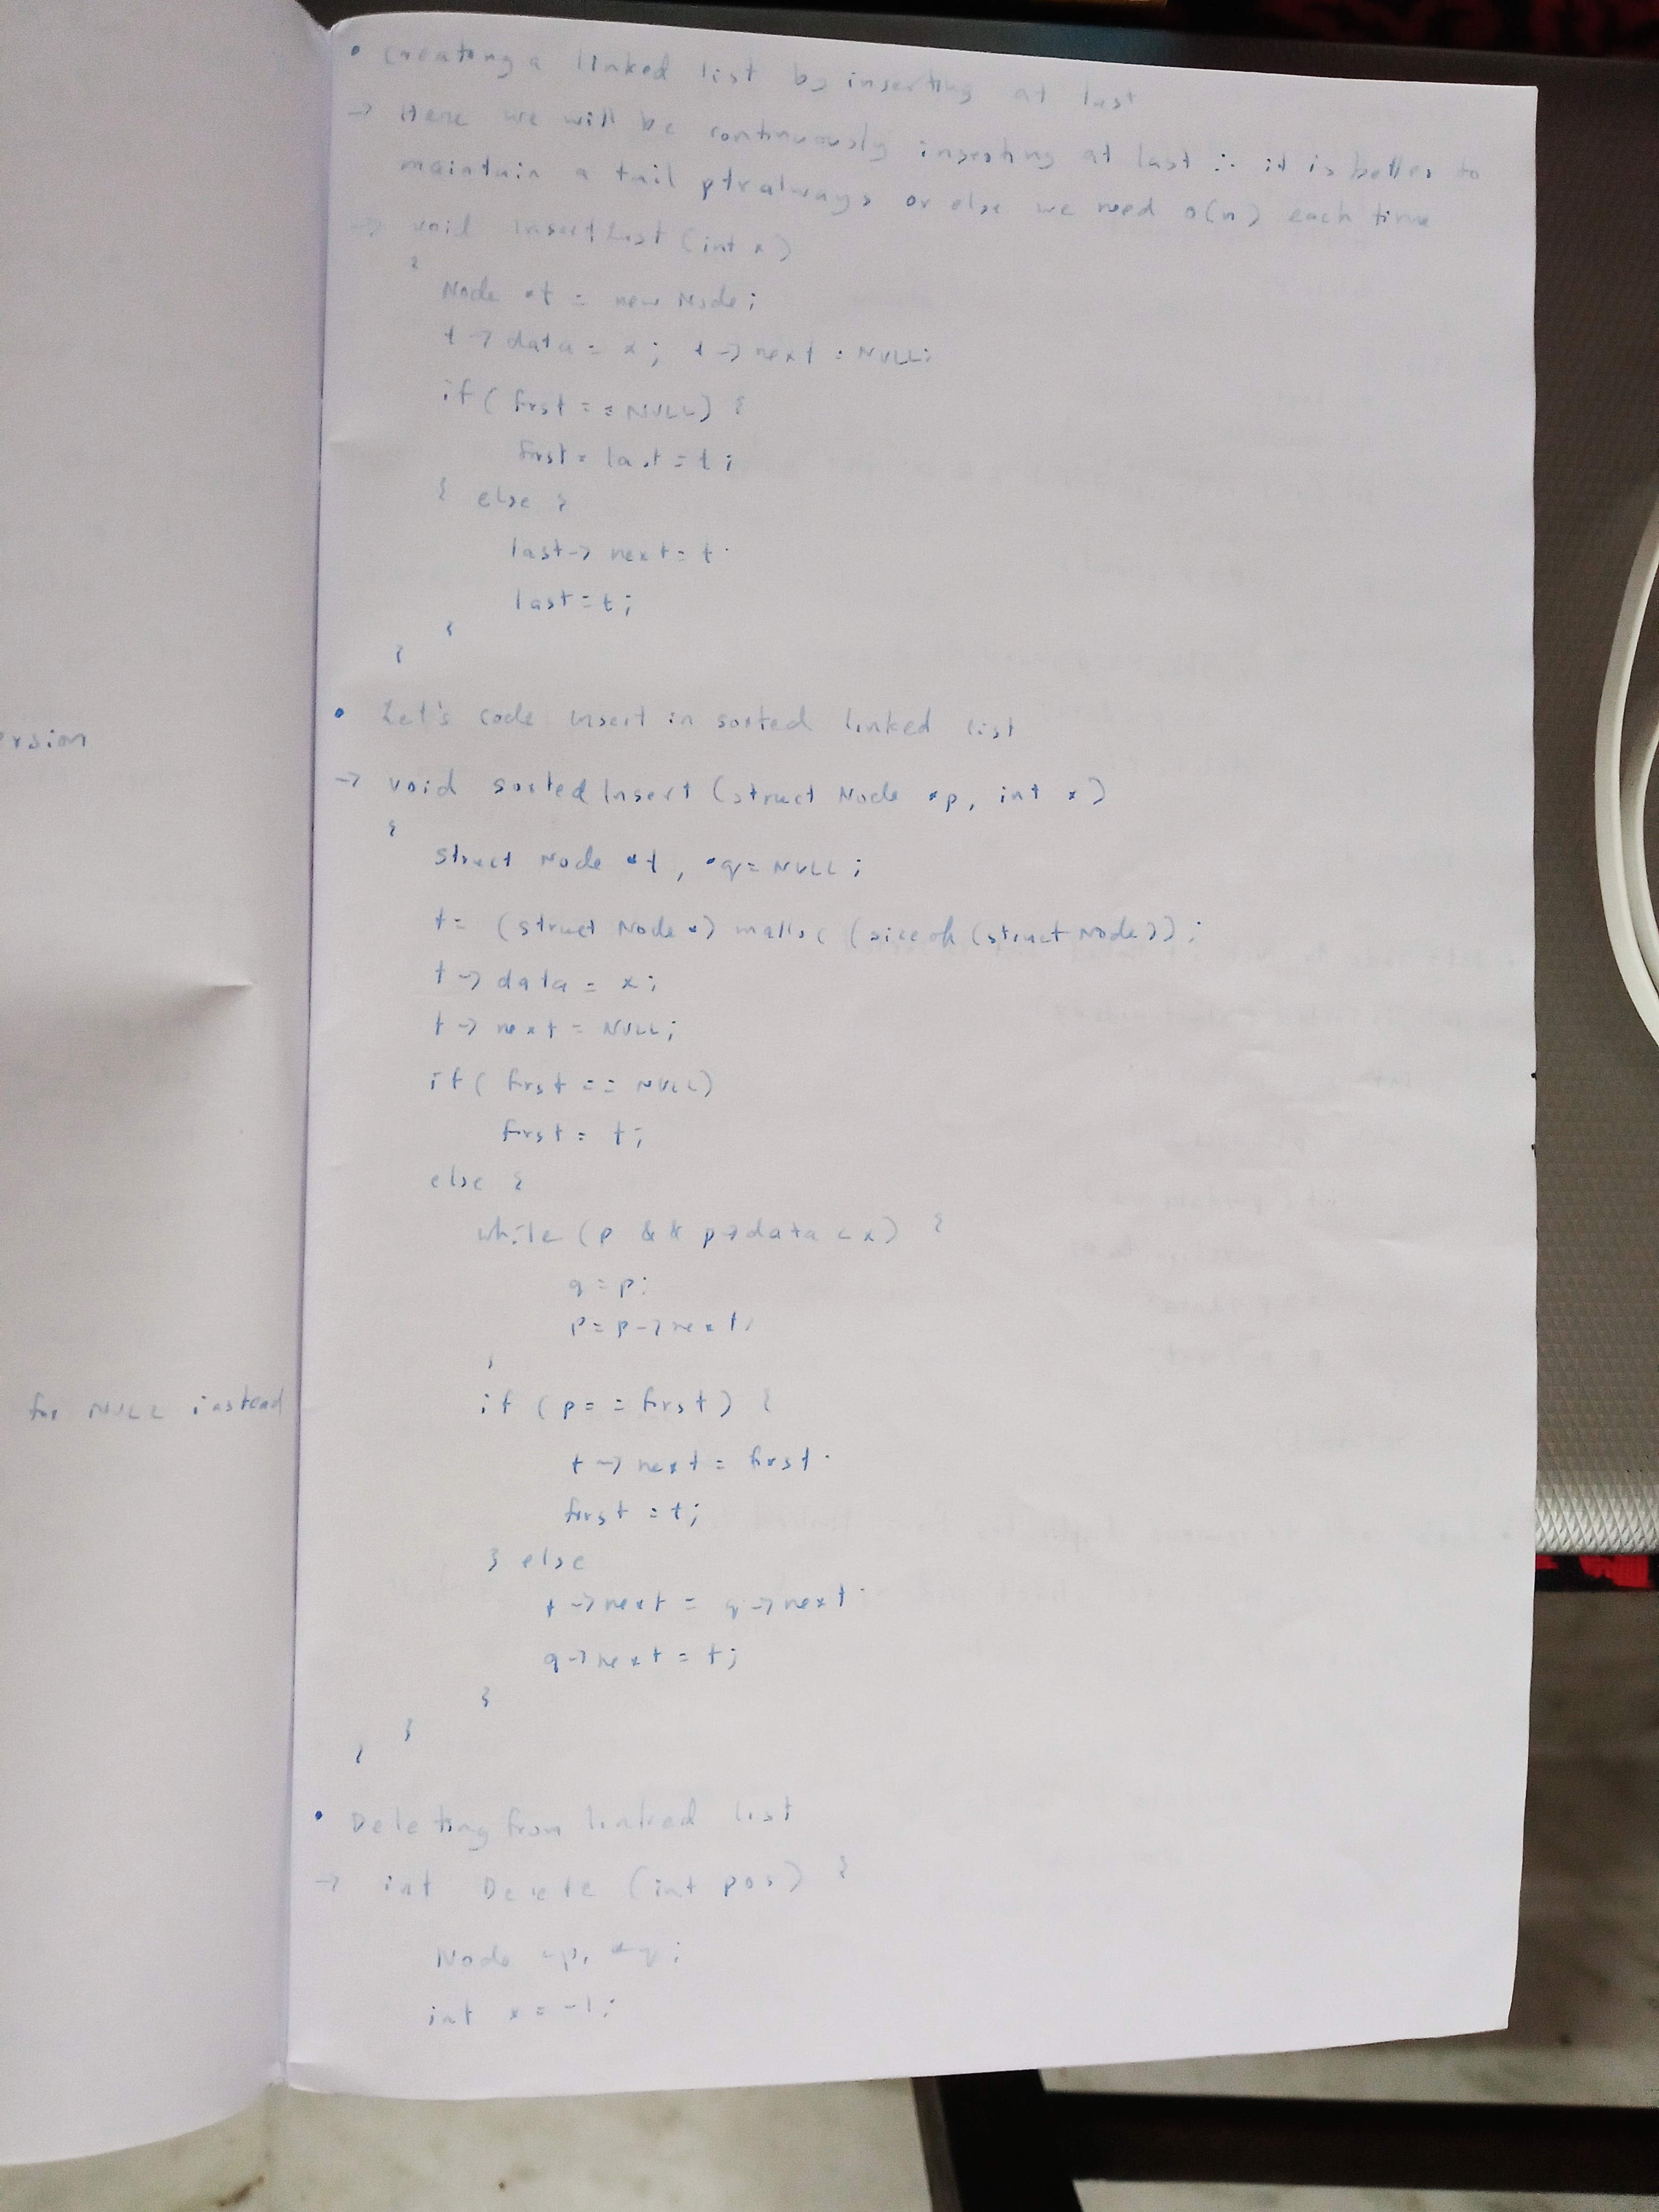 • Creating a linked list by inserting at last
→ Here we will be continuously inserting at last ∴ it is better to
maintain a tail ptr always or else we need o(n) each time
→ void InsertLast (int x)
{
Node *t = new Node;
t → data = x; t → next = NULL;
if ( first == NULL) {
first = last = t;
} else {
last → next = t;
last = t;
}
}
• Let's code insert in sorted linked list
→ void sortedInsert (struct Node *p, int x)
{
struct Node *t, *q = NULL;
t = (struct Node *) malloc (sizeof (struct Node));
t → data = x;
t → next = NULL;
if ( first == NULL)
first = t;
else {
while (p && p→data < x) {
q = p;
p = p → next;
}
if (p == first) {
t → next = first;
first = t;
} else
t → next = q → next;
q → next = t;
}
}
}
• Deleting from linked list
→ int Delete (int pos) {
Node *p, *q;
int x = -1;
ersion
for NULL instead